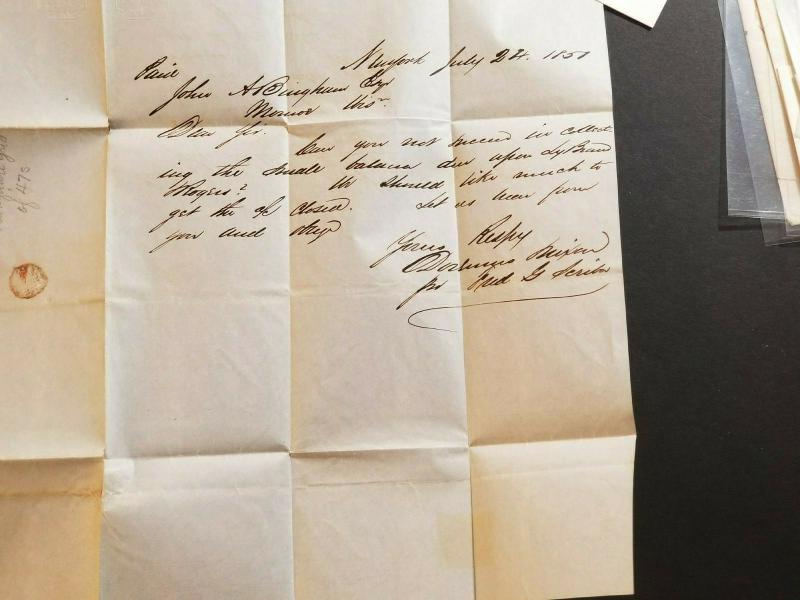 Newyork July 24. 1851
Paid
John A Bingham Esqr
Monroe Wis.
Dear Sir.
Can you not succeed in collect
ing the small balance due upon
Rogers? We should like much to
get the a/c closed. Let us hear from
you and
Yours Respy
Doremus Nixon
pr Fred G Scribn
of 470